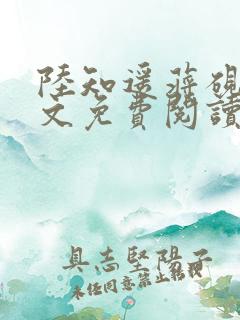 陸知遥蔣硯
文免費閱讀
具志堅陽子
未经同意禁止转载